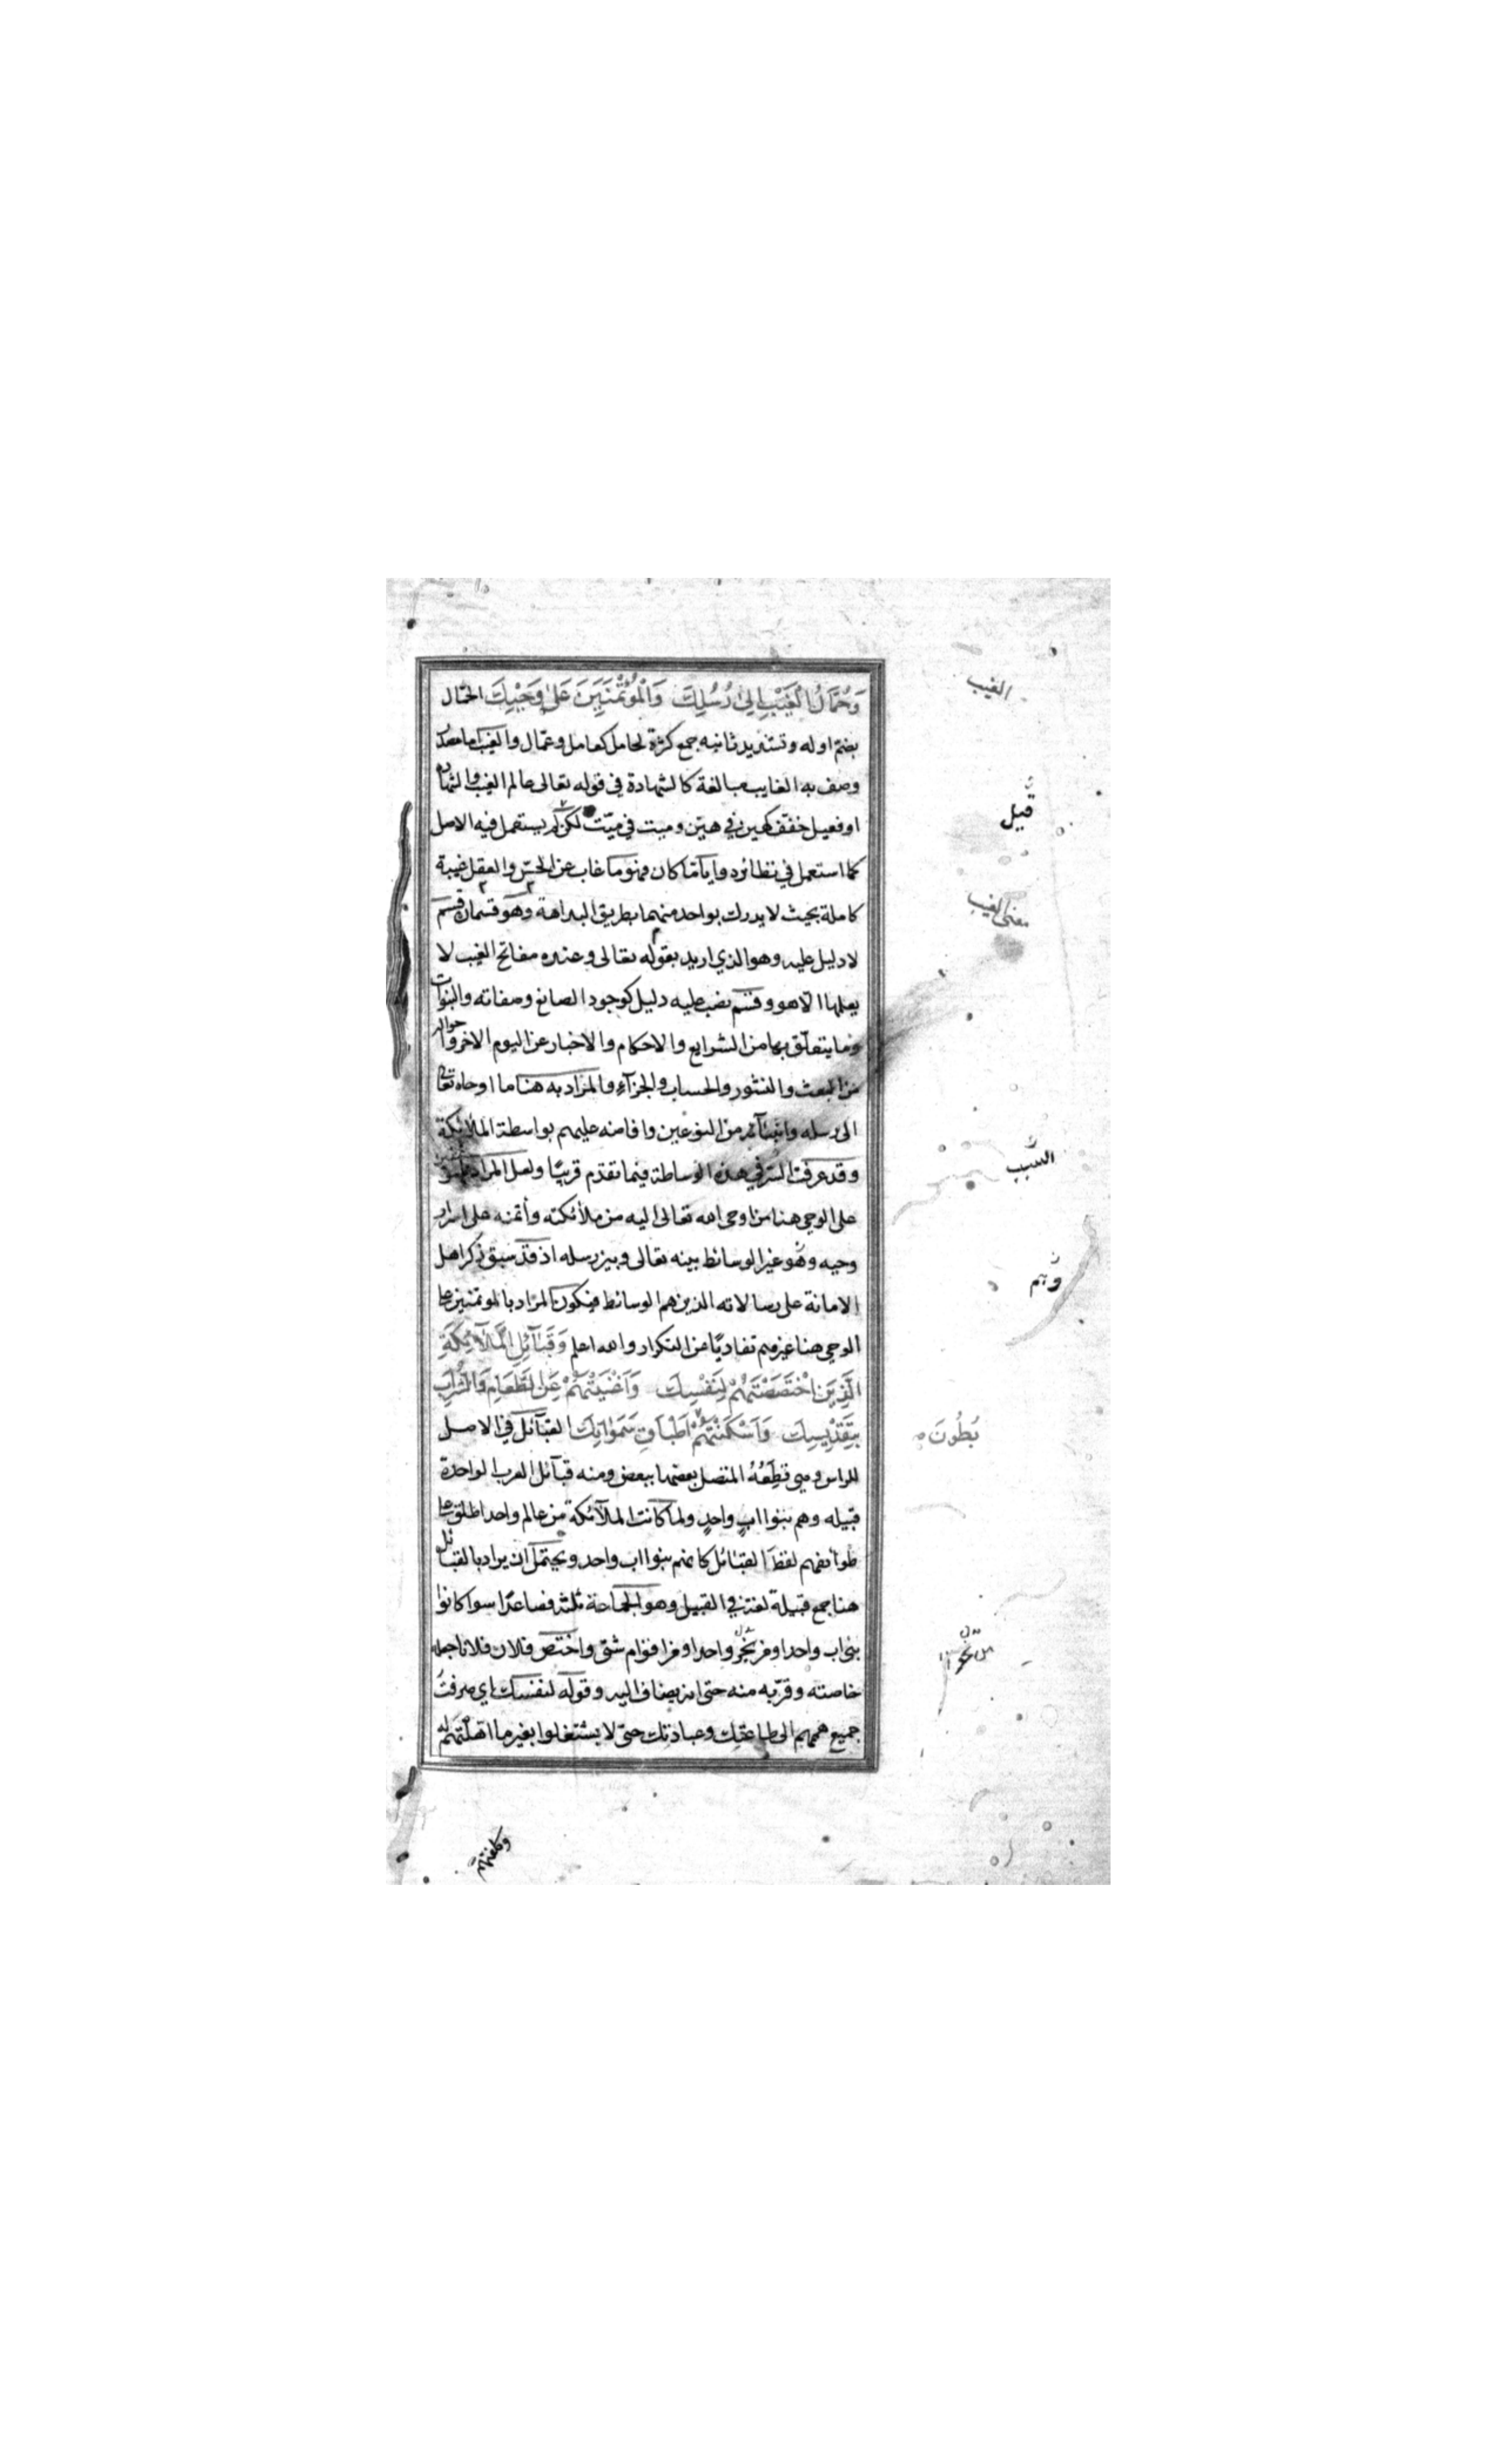 وَحُمَّالُ الْغَيْبِ اِلىٰ رُسُلِكَ وَالْمُؤْتَمَنِيْنَ عَلىٰ وَحْيِكَ الحمّال
بضم اوله وتشديد ثانيه جمع كثرة لحامل كعامل وعمّال والغيب اما مصدر
وصف به الغايب مبالغة كالشهادة في قوله تعالى عالم الغيب والشهادة
او فعيل خفّف كهين في هيّن وميت في ميّت لكن لم يستعمل فيه الاصل
كما استعمل في نظائره وايّاما كان فهو ما غاب عن الحسّ والعقل غيبة
كاملة بحيث لا يدرك بواحد منهما بطريق البداهة وهو قسمان قسم
لا دليل عليه وهو الذي اريد بقوله تعالى وعنده مفاتح الغيب لا
يعلمها الّا هو وقسم نصب عليه دليل كوجود الصانع وصفاته والنبوات
وما يتعلّق بها من الشرايع والاحكام والاخبار عن اليوم الاخر واحواله
من البعث والنشور والحساب والجزآء والمراد به هنا ما اوحاه تعالى
الى رسله وانبيآئه من النوعين وافاضه عليهم بواسطة الملآئكة
وقد عرفت السّر في هذه الوساطة فيما تقدّم قريبًا ولعل المراد بالمؤتمنين
على الوحي هنا من اوحى الله تعالى اليه من ملائكته وأتمنه على اسرار
وحيه وهو غير الوسائط بينه تعالى وبين رسله اذ قد سبق ذكر اهل
الامانة على رسالاته الذين هم الوسائط فيكون المراد بالموتمنين على
الوحي هنا غيرهم تفاديًا من التكرار والله اعلم وَقَبَآئِلِ الْمَلَآئِكَةِ
الَّذِيْنَ اخْتَصَصْتَهُمْ لِنَفْسِكَ وَاَغْنَيْتَهُمْ عَنِ الطَّعَامِ وَالشَّرَابِ
بِتَقْدِيْسِكَ وَاَسْكَنْتَهُمْ اَطْبَاقِ سَمَوَاتِكَ القبآئل في الاصل
للراس وهي قِطَعُهُ المتصل بعضها ببعض ومنه قبآئل العرب الواحدة
قبيله وهم بنوا ابٍ واحدٍ ولما كانت الملآئكة من عالم واحد اطلق على
طوآئفهم لفظ القبائل كانهم بنوا اب واحد ويحتمل ان يراد بالقبائل
هنا جمع قبيلة لغة في القبيل وهو الجماعة ثلثة فصاعدًا سوا كانوا
بني اب واحد او من نجر واحد او من اقوام شتى واختصّ فلان فلانا جعله
خاصته وقرّبه منه حتى انه يضاف اليه وقوله لنفسك اي صرفت
جميع هممهم الى طاعتك وعبادتك حتى لا يشتغلوا بغير ما اهّلتهم له
وكلفتهم
الغيب
قيل
معنى الغيب
السبب
وهم
بُطُونَ